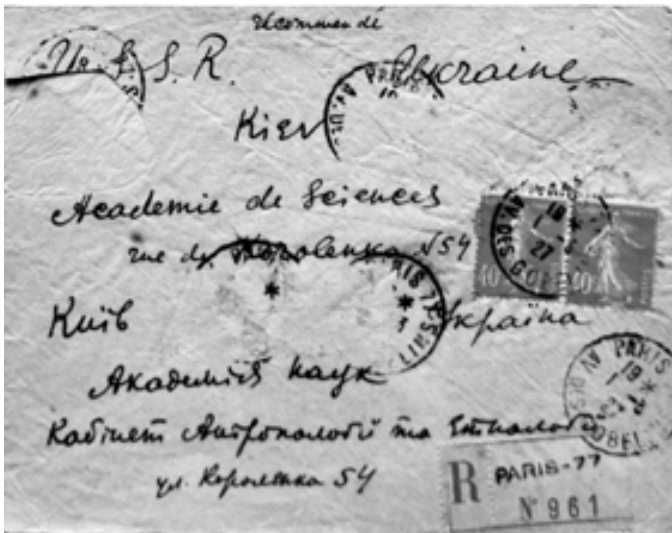 Recommandé
U. S. S. R. Ukraine
Kiev
Academie de Sciences
rue de Korolenka № 54
Київ Україна
Академия наук
Кабінет Антропології та Етнології
ул. Короленка 54
40
PARIS
AV. DES GOBEL
19 *
1
27
R PARIS-77
N° 961